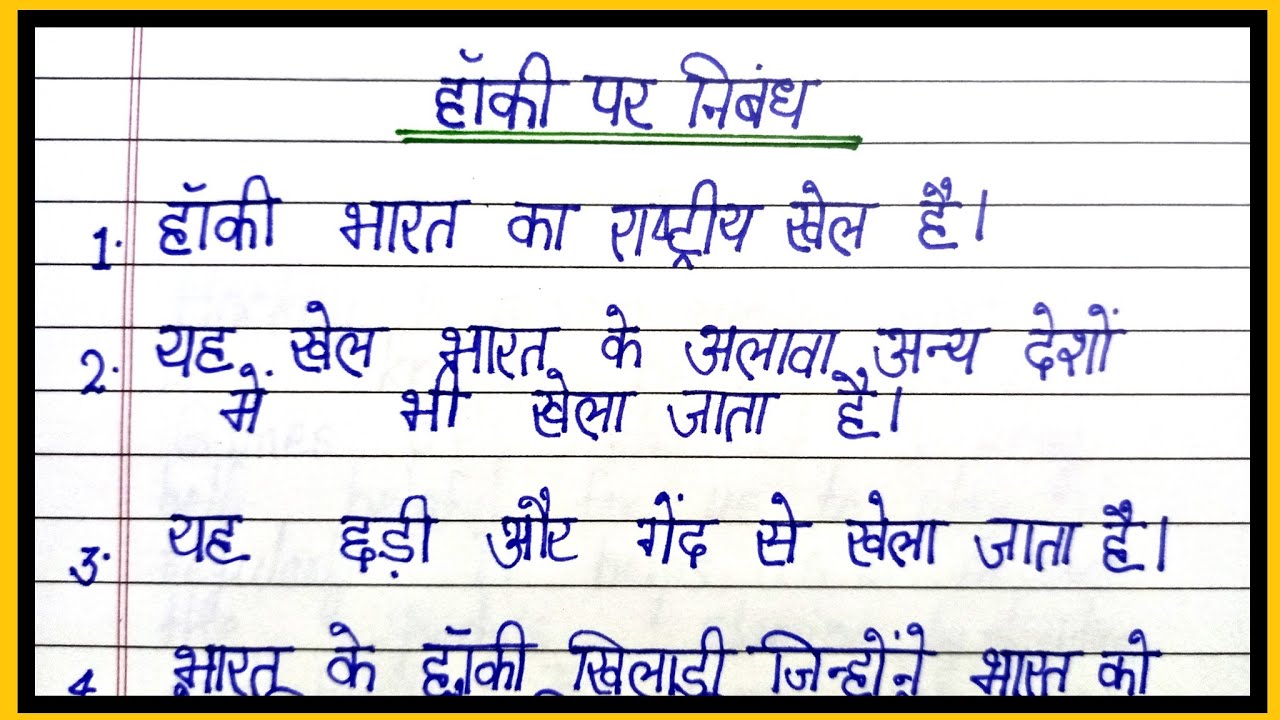 हॉकी पर निबंध
1. हॉकी भारत का राष्ट्रीय खेल है।
2. यह खेल भारत के अलावा अन्य देशों
में भी खेला जाता है।
3. यह छड़ी और गेंद से खेला जाता है।
4 भारत के हॉकी खिलाड़ी जिन्होंने भारत को